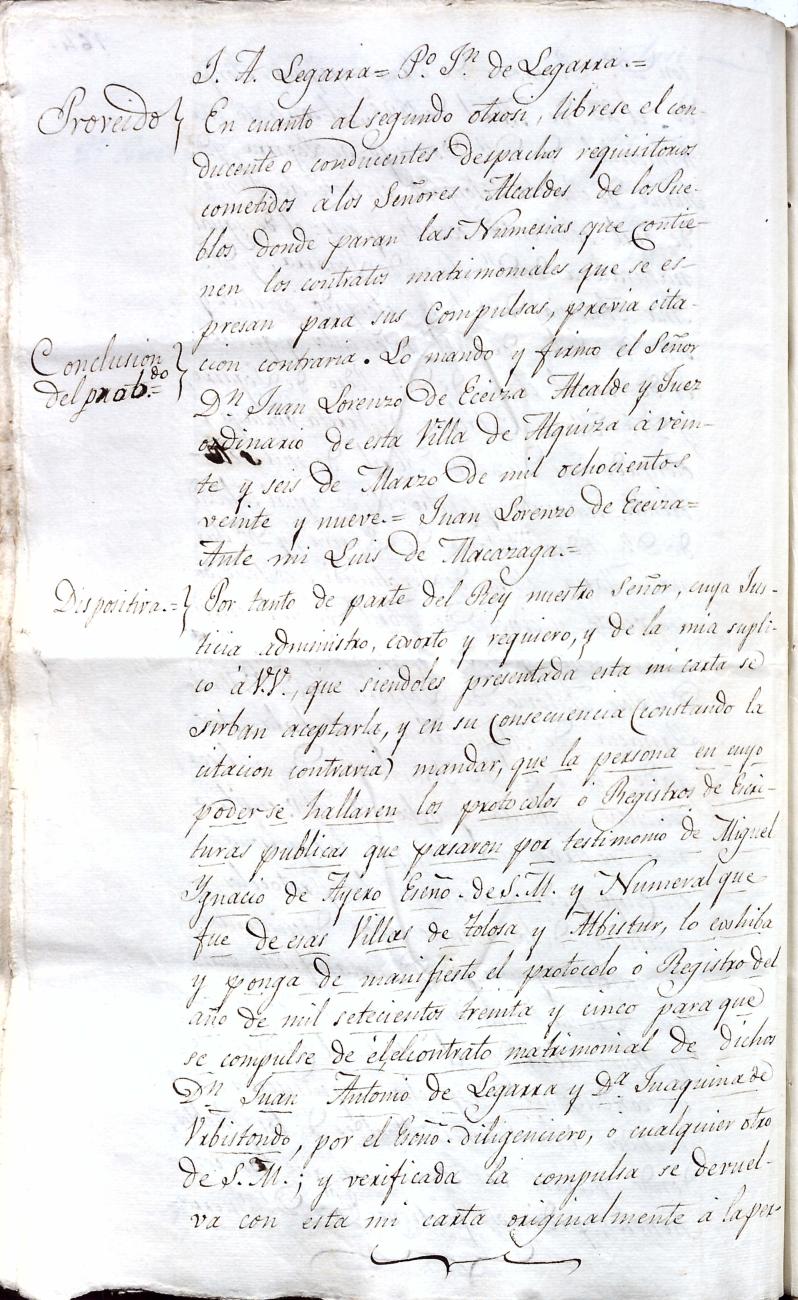 J. A. Legarra= Po. Jn. de Legarra.=
Proveido} En cuanto al segundo otrosi, librese el con-
ducente o conducentes despachos requisitorios
cometidos à los Señores Alcaldes de los Pue-
blos donde paran las Numerias que contie-
nen los contratos matrimoniales que se es-
presan para sus Compulsas, previa cita-
Conclusion
del prob.do=} cion contraria. Lo mando y firmo el Señor
Dn. Juan Lorenzo de Eceiza Alcalde y Juez
ordinario de esta Villa de Alquiza à vein-
te y seis de Marzo de mil ochocientos
veinte y nueve.= Juan Lorenzo de Eceiza=
Ante mi Luis de Macazaga.=
Dispositiva.=} Por tanto de parte del Rey nuestro Señor, cuya Jus-
ticia administro, exorto y requiero, y de la mia supli-
co à V.V., que siendoles presentada esta mi carta se
sirban aceptarla, y en su consecuencia (constando la
citacion contraria) mandar, que la persona en cuyo
poder se hallaren los protocolos ó Registros de Escri-
turas publicas que pasaron por testimonio de Miguel
Ygnacio de Ayero Esñô. de S. M. y Numeral que
fue de esas Villas de Tolosa y Albistur, lo exhiba
y ponga de manifiesto el protocolo ó Registro del
año de mil setecientos treinta y cinco para que
se compulse de él, el contrato matrimonial de dichos
Dn. Juan Antonio de Legarra y Da. Juaquina de
Urbistondo, por el Esñô. diligenciero, o cualquier otro
de S. M.; y verificada la compulsa se debuel-
va con esta mi carta originalmente à la per-